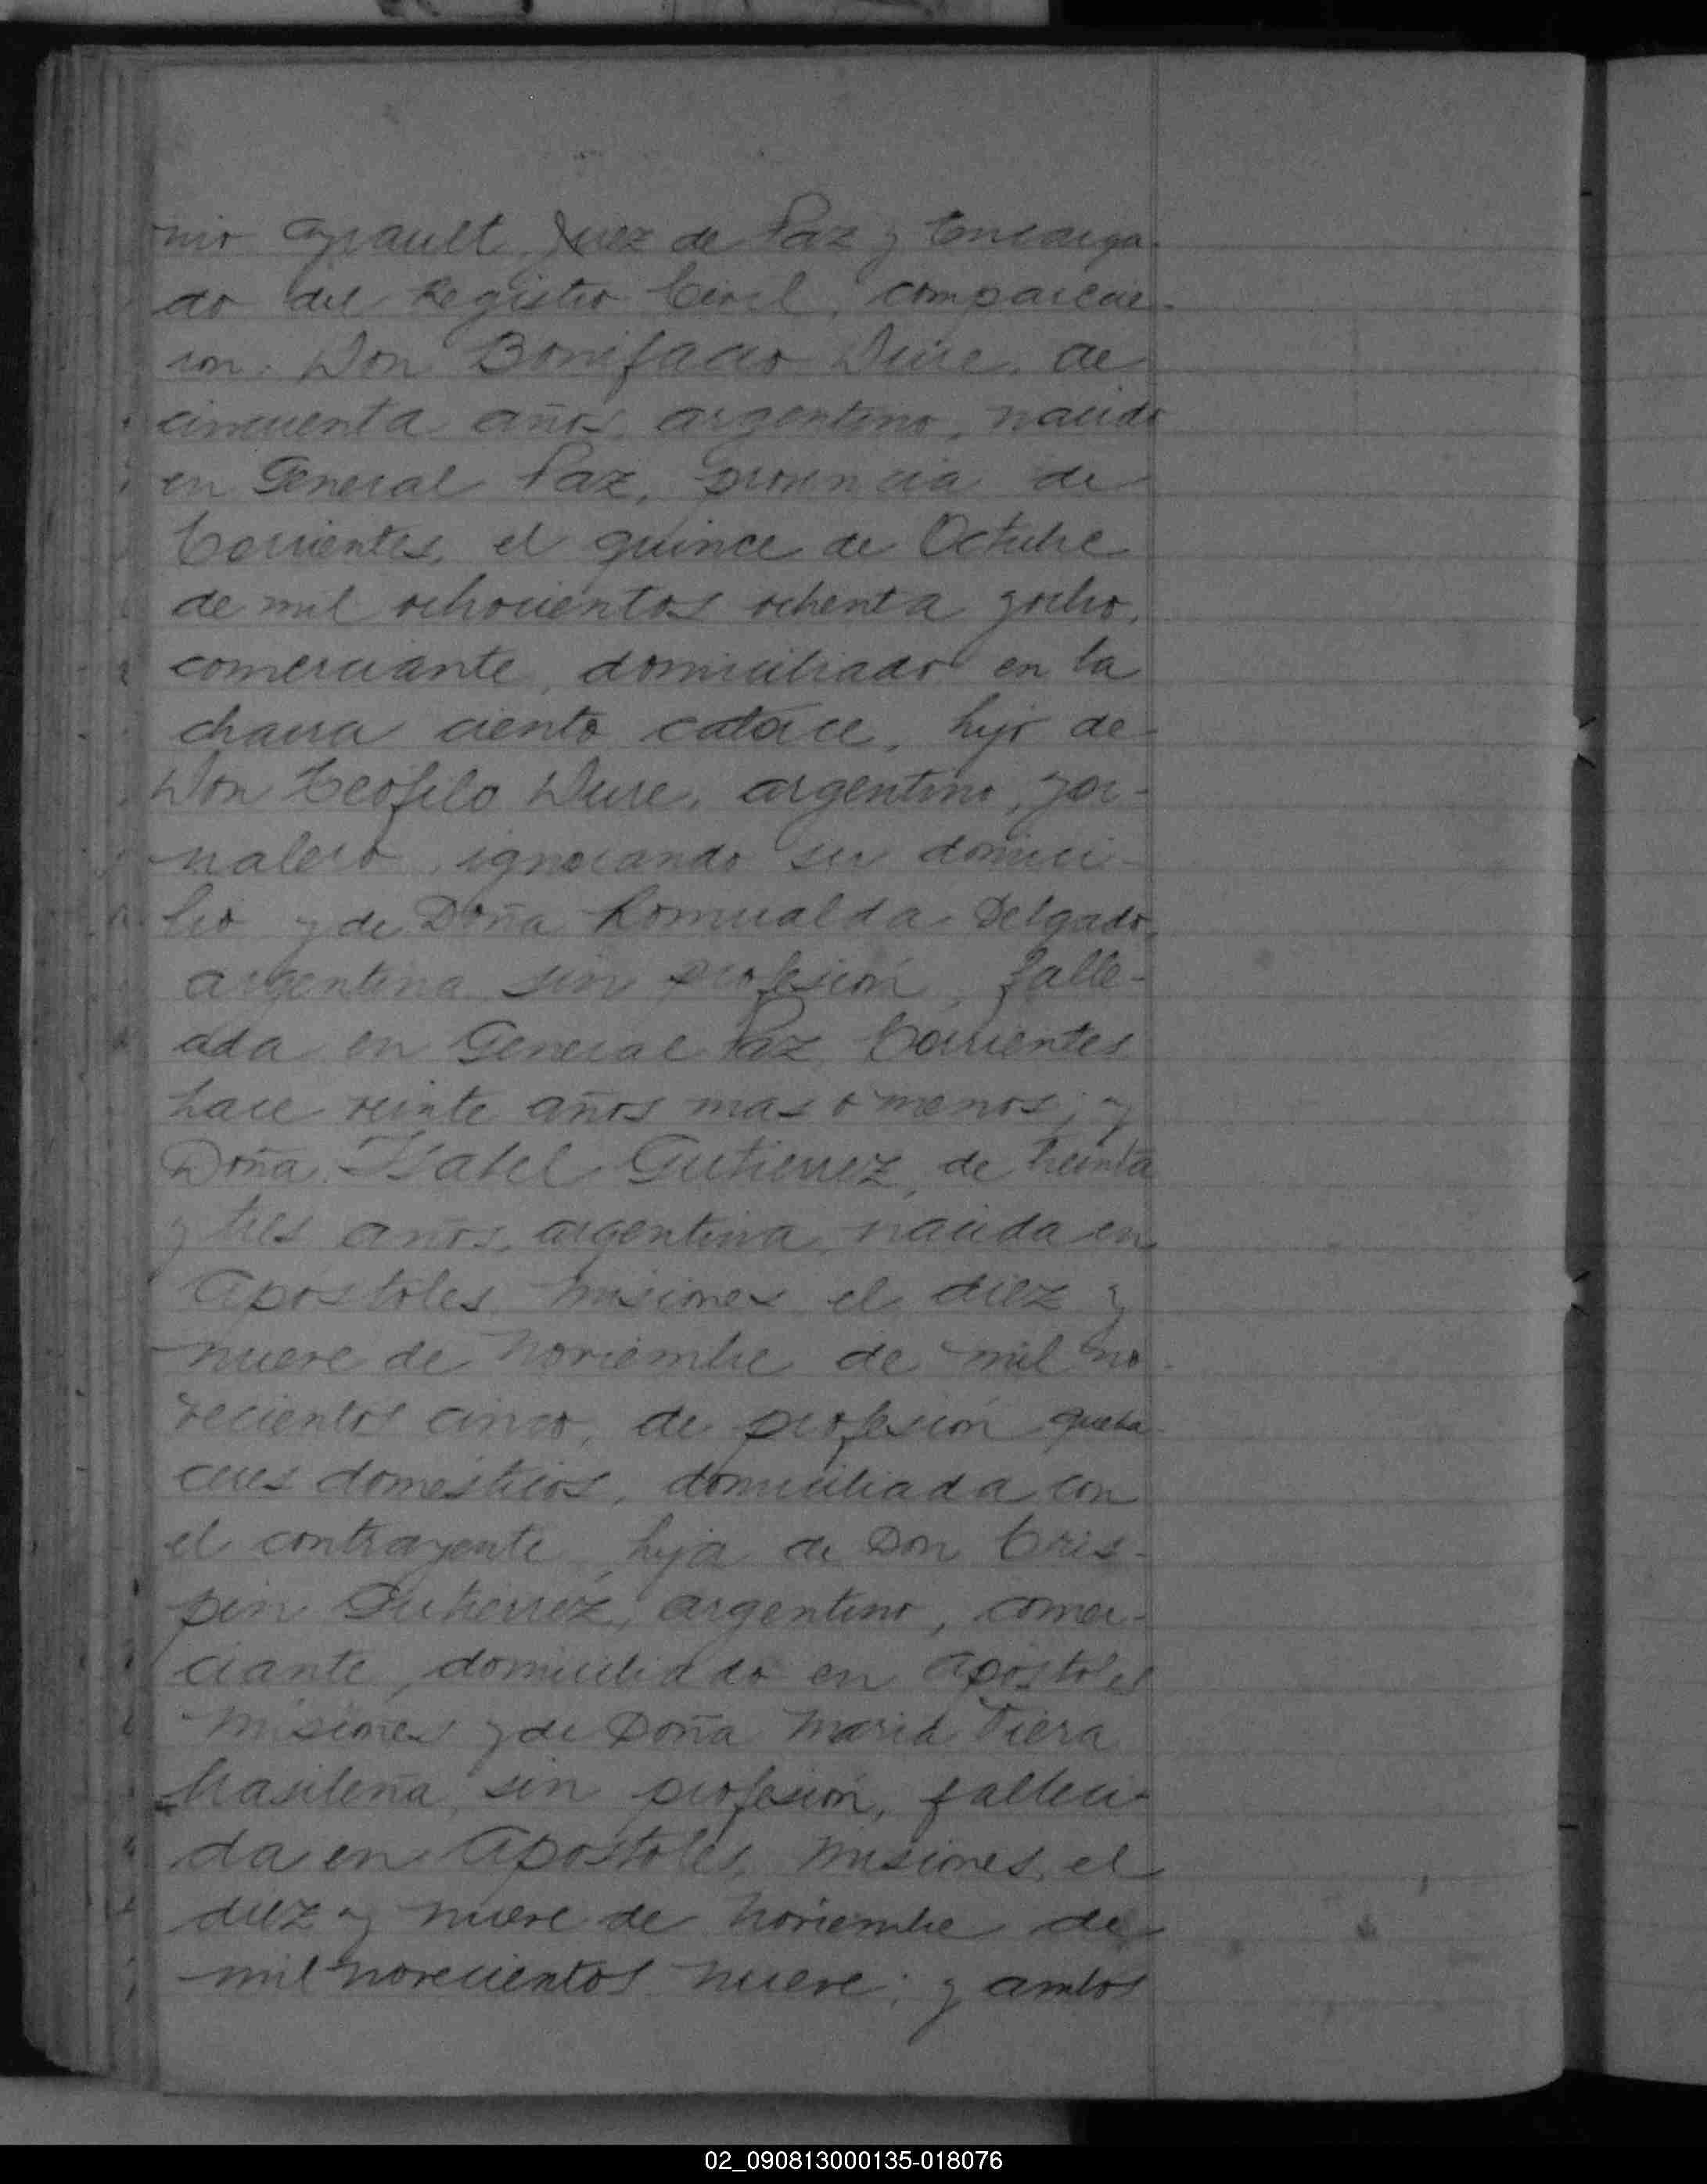 nio Ayrault, Juez de Paz y Encarga-
do del Registro Civil, comparecie-
ron: Don Bonifacio Dure, de
cincuenta años, argentino, nacido
en General Paz, provincia de
Corrientes, el quince de Octubre
de mil ochocientos ochenta y ocho,
comerciante, domiciliado en la
chacra ciento catorce, hijo de
Don Teofilo Dure, argentino, jor-
nalero, ignorando su domici-
lio y de Doña Romualda Delgado,
argentina sin profesión, falle-
cida en General Paz Corrientes
hace veinte años mas o menos; y
Doña Isabel Gutierrez, de treinta
y tres años, argentina, nacida en
Apostoles Misiones el diez y
nueve de Noviembre de mil no-
vecientos cinco, de profesión queha-
ceres domésticos, domiciliada con
el contrayente, hija de Don Cris-
pin Gutierrez, argentino, comer-
ciante, domiciliado en Apostoles
Misiones y de Doña Maria Viera
brasileña, sin profesión, falleci-
da en Apostoles, Misiones, el
diez y nueve de Noviembre de
mil novecientos nueve; y ambos
02_090813000135-018076